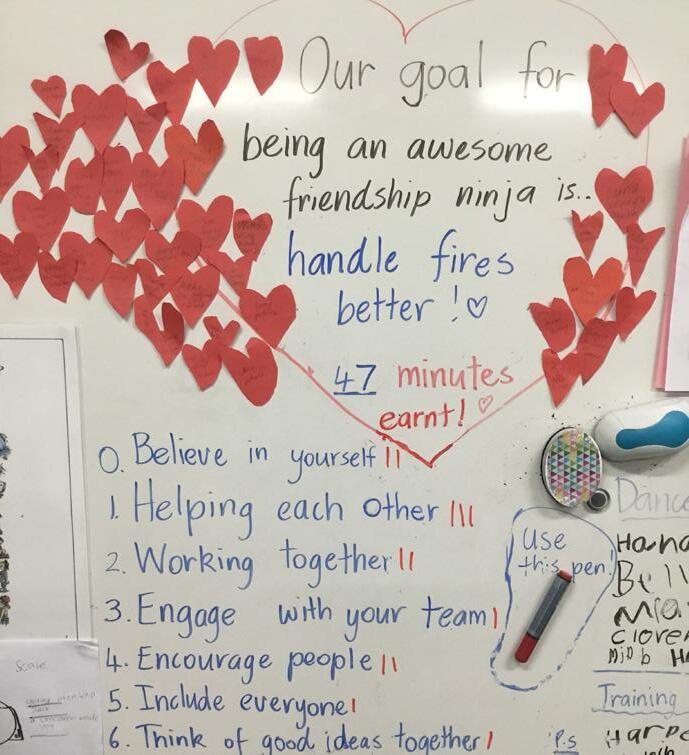 Our goal for
being an awesome
friendship ninja is..
handle fires
better ! ♡
47 minutes
earnt! ♡
0. Believe in yourself II
1. Helping each other III
2. Working together II
3. Engage with your team I
4. Encourage people II
5. Include everyone I
6. Think of good ideas together I
use
this pen!
Danc
Hana
Bell
Mia
Clover
Training
P.S
Harp
Scale